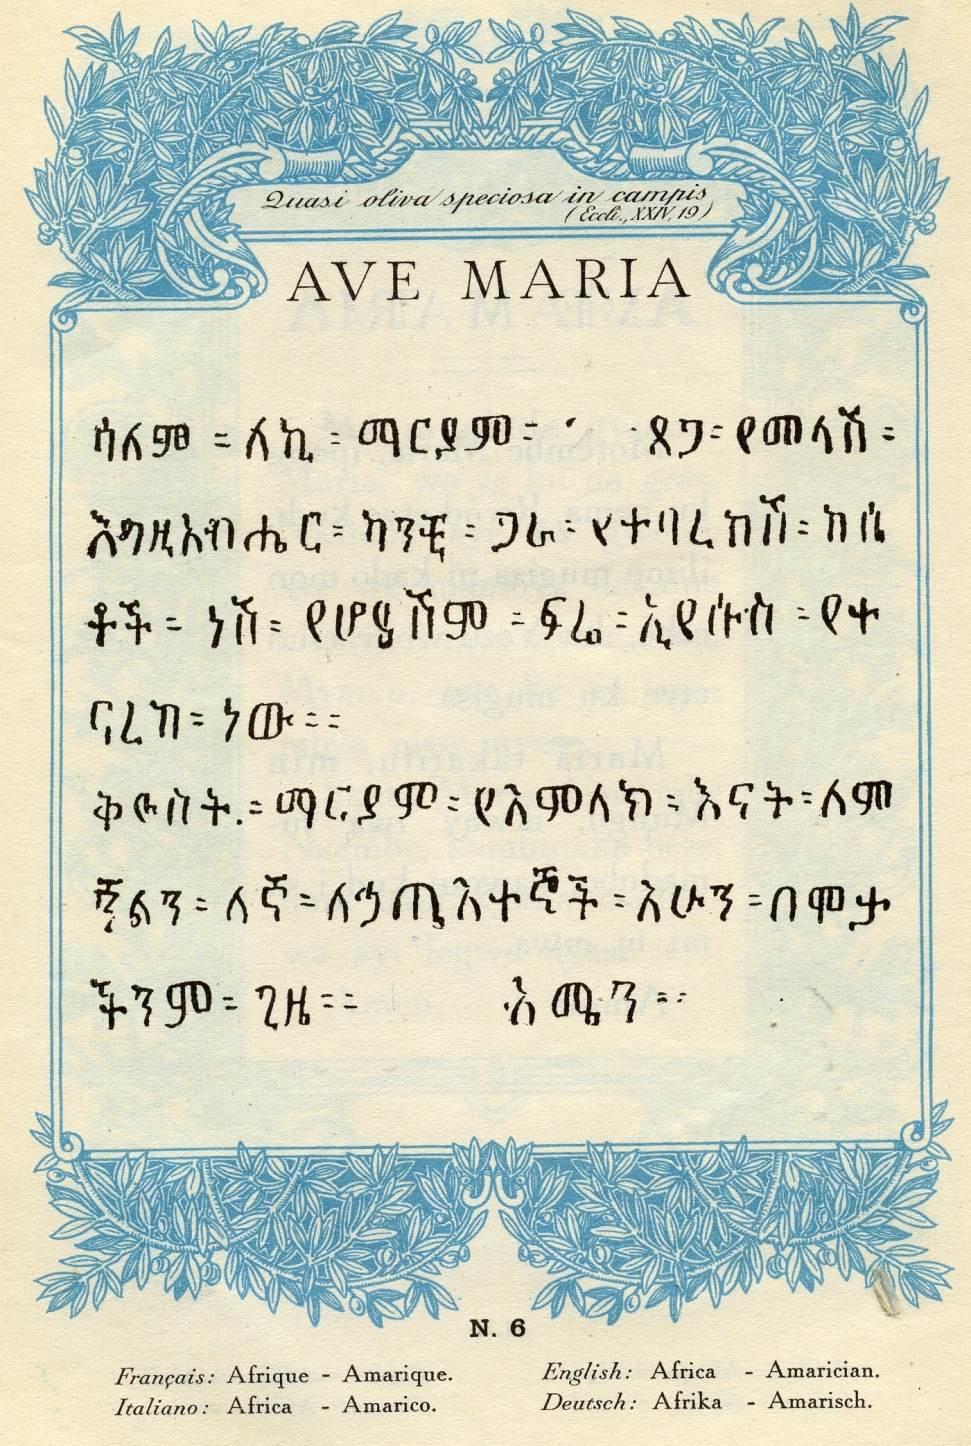 Quasi oliva speciosa in campis
(Eccli., XXIV, 19)
AVE MARIA
ሳለም = ለኪ = ማርያም = ጸጋ = የመላሽ =
እግዚአብሔር = ካንቺ = ጋራ = የተባረክሽ = ከሴ
ቶች = ነሽ = የሆድሽም = ፍሬ = ኢየሱስ = የተ
ባረከ = ነው = =
ቅድስት = ማርያም = የአምላክ = እናት = ለም
ኚልን = ለኛ = ለኃጢአተኞች = አሁን = በሞታ
ችንም = ጊዜ = = አሜን = =
N. 6
Français: Afrique - Amarique.
Italiano: Africa - Amarico.
English: Africa - Amarician.
Deutsch: Afrika - Amarisch.